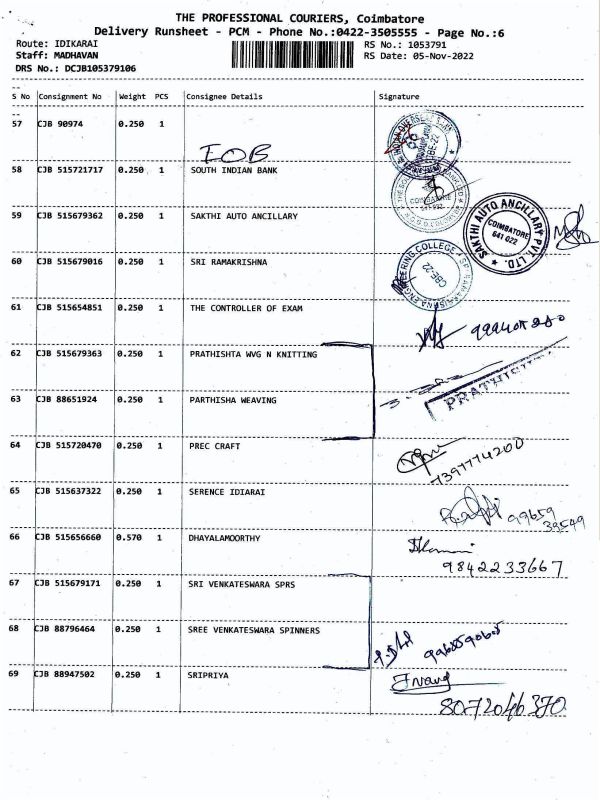 THE PROFESSIONAL COURIERS, Coimbatore
Delivery Runsheet - PCM - Phone No.:0422-3505555 - Page No.:6
Route: IDIKARAI RS No.: 1053791
Staff: MADHAVAN RS Date: 05-Nov-2022
DRS No.: DCJB105379106
S No Consignment No Weight PCS Consignee Details Signature
57 CJB 90974 0.250 1
IOB
58 CJB 515721717 0.250 1 SOUTH INDIAN BANK
COIMBATORE
641 022
59 CJB 515679362 0.250 1 SAKTHI AUTO ANCILLARY
SAKTHI AUTO ANCILLARY PVT. LTD.
COIMBATORE
641 022
60 CJB 515679016 0.250 1 SRI RAMAKRISHNA
CBE-22
61 CJB 515654851 0.250 1 THE CONTROLLER OF EXAM
62 CJB 515679363 0.250 1 PRATHISHTA WVG N KNITTING
63 CJB 88651924 0.250 1 PARTHISHA WEAVING
64 CJB 515720470 0.250 1 PREC CRAFT
7397774200
65 CJB 515637322 0.250 1 SERENCE IDIARAI
99659
39549
66 CJB 515656660 0.570 1 DHAYALAMOORTHY
9842233667
67 CJB 515679171 0.250 1 SRI VENKATESWARA SPRS
68 CJB 88796464 0.250 1 SREE VENKATESWARA SPINNERS
69 CJB 88947502 0.250 1 SRIPRIYA
8072046370